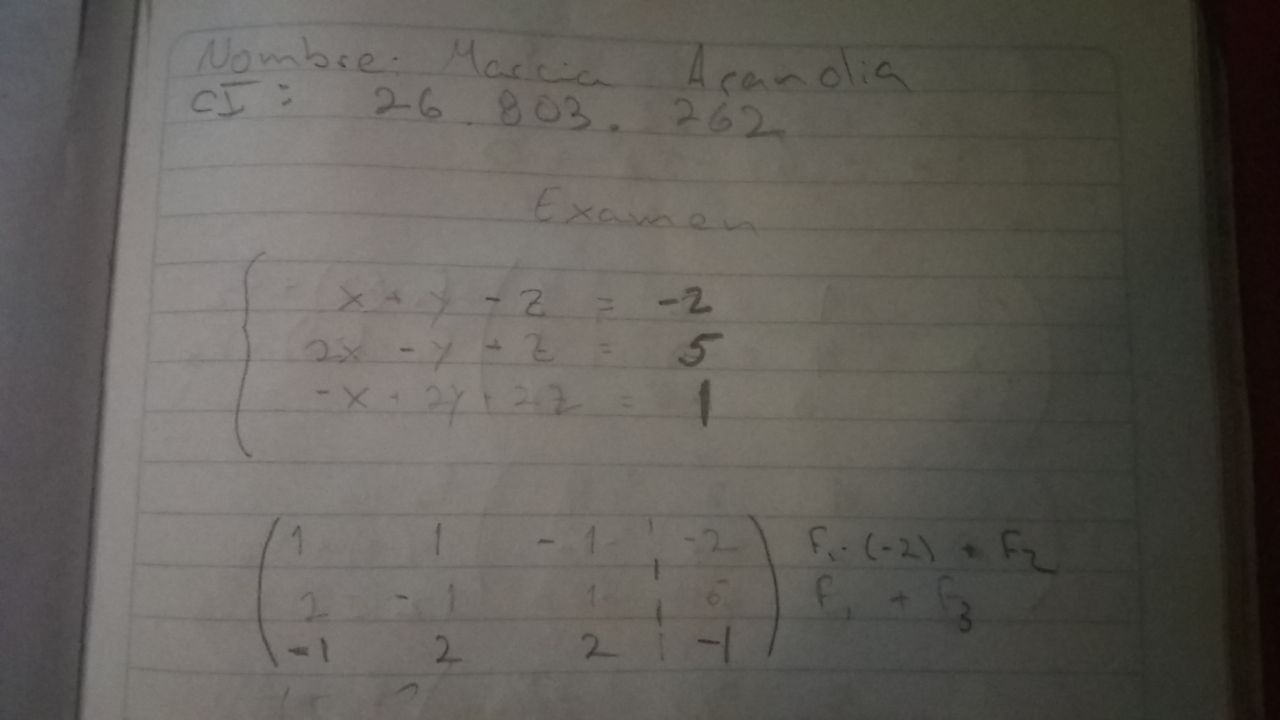 Nombre: Marcia Arandia
CI: 26.803.262
Examen
x + y - z = -2
2x - y + z = 5
-x + 2y + 2z = 1
1 1 -1 | -2 F₁·(-2) + F₂
2 -1 1 | 5 F₁ + F₃
-1 2 2 | -1